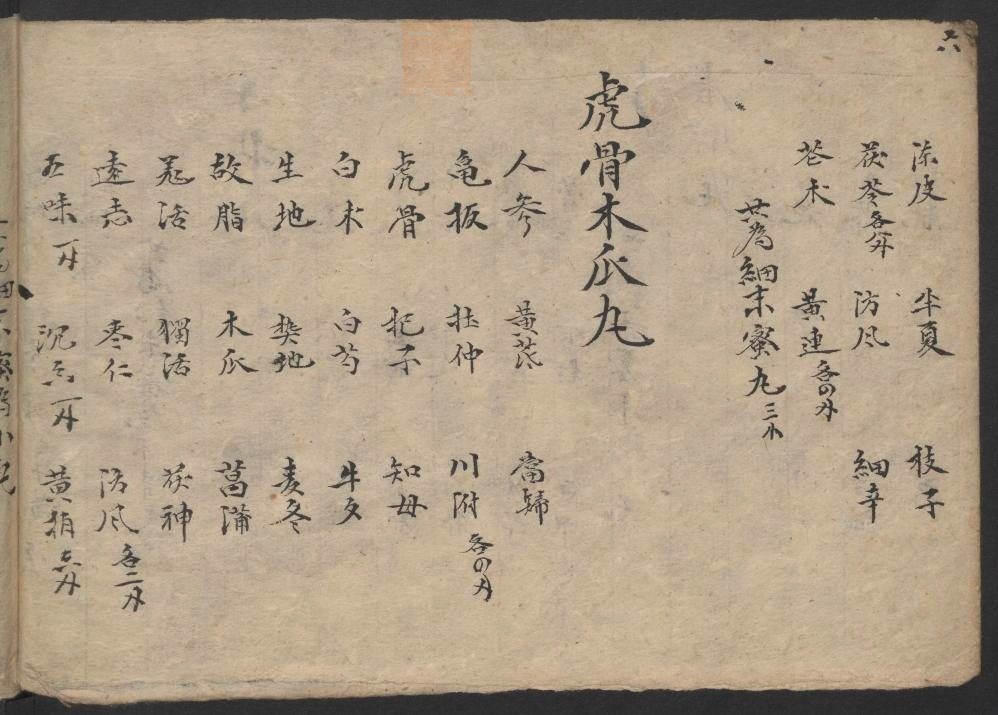 六
陳皮 半夏 枝子
茯苓各 防风 細辛
苍术 黄連各四
共為細末蜜丸三
虎骨木瓜丸
人參 黄芪 當歸
龟板 杜仲 川附各四
虎骨 杞子 知母
白术 白芍 牛夕
生地 熟地 麦冬
故脂 木瓜 菖蒲
羌活 獨活 茯神
遠志 枣仁 防风各二
五味一 沉香一 黄柏六